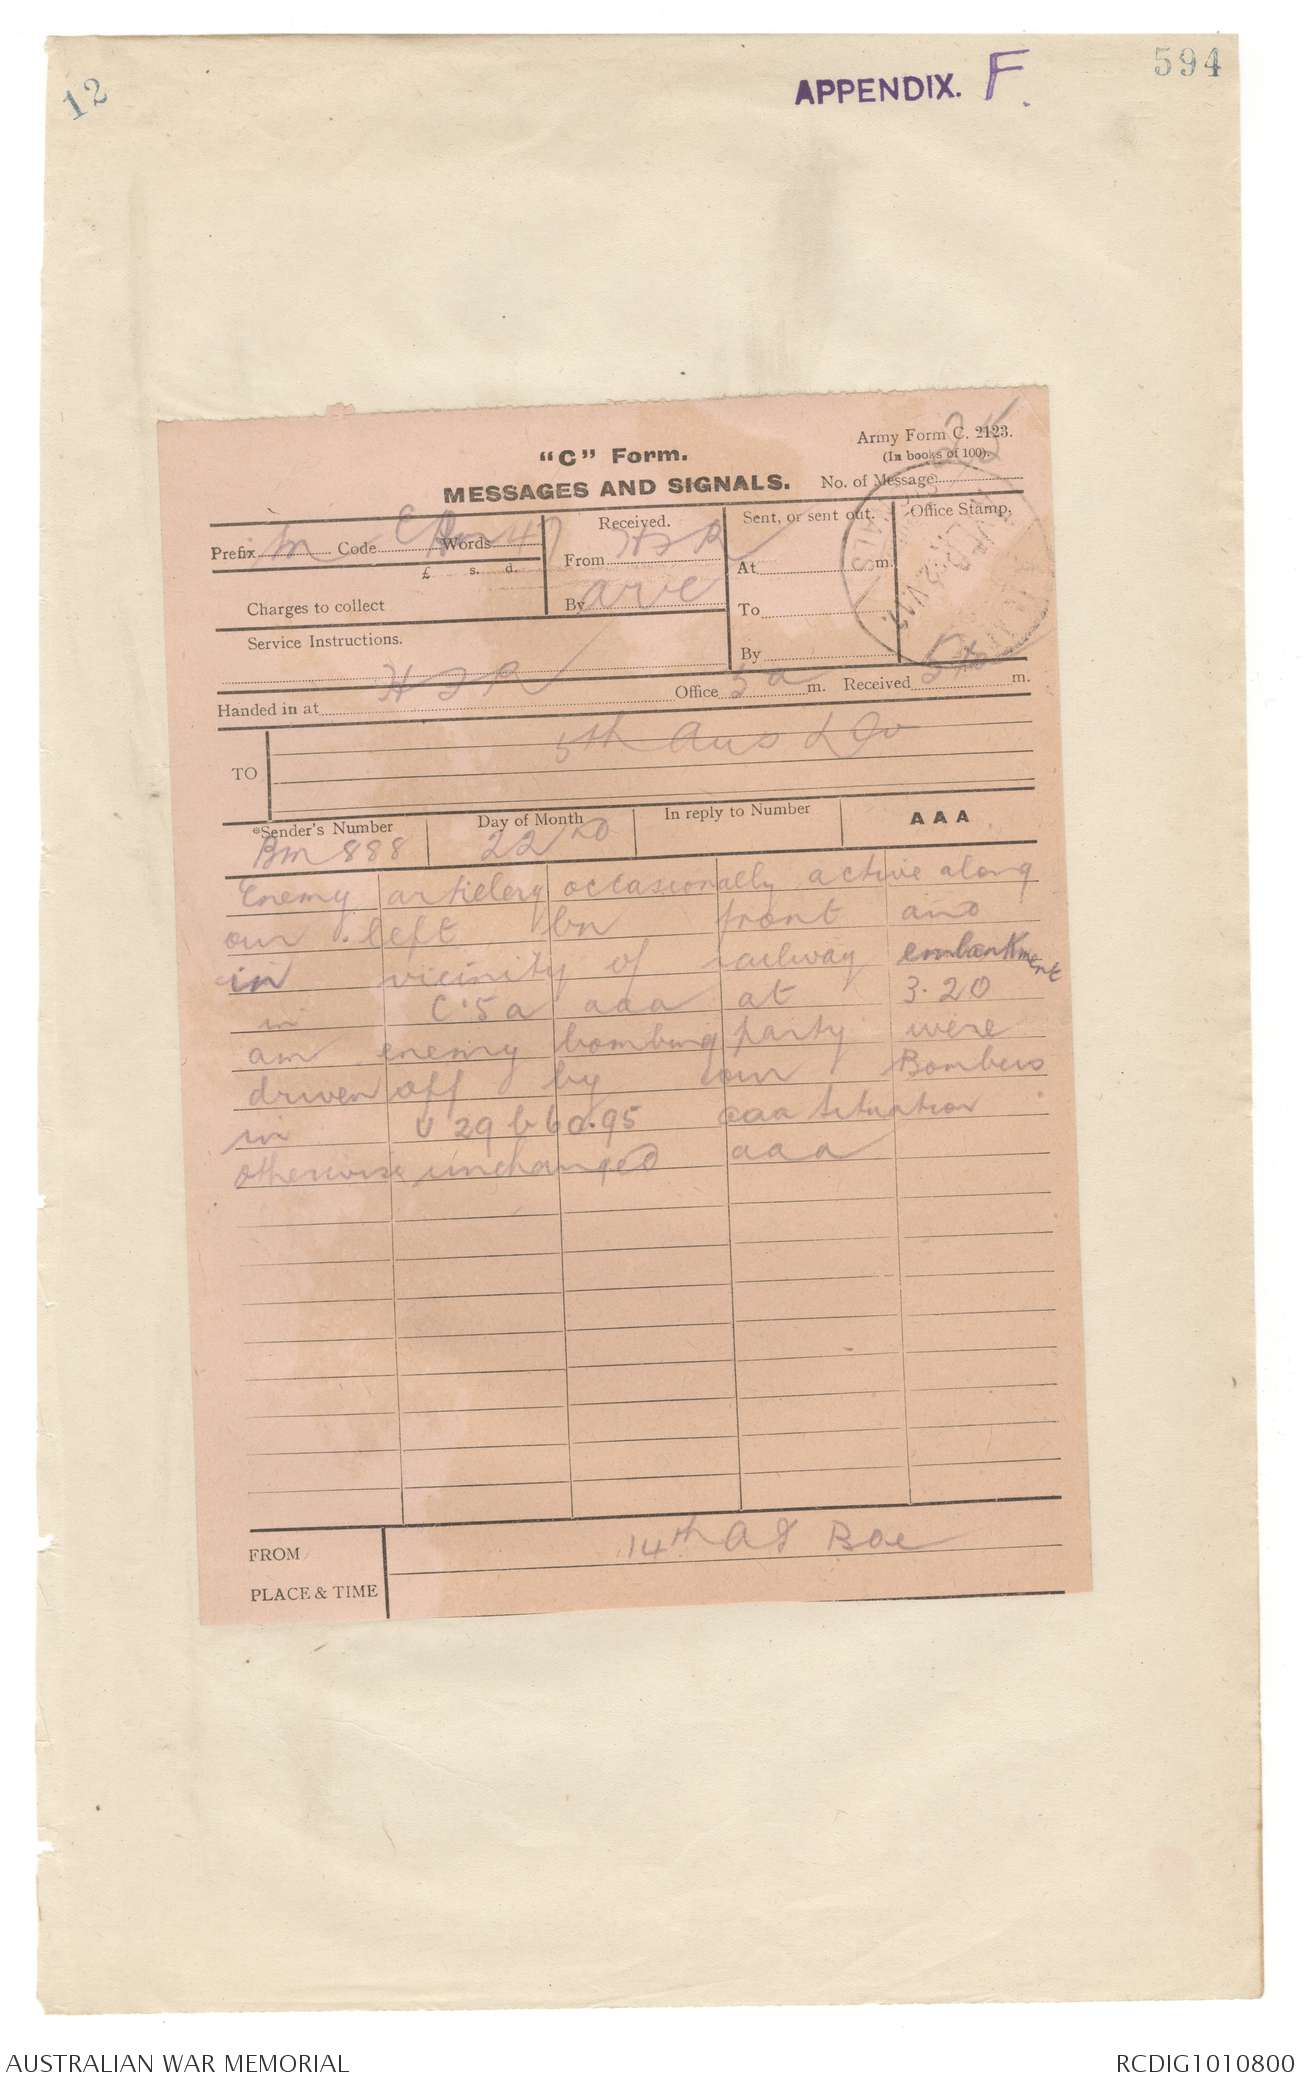 12
APPENDIX. F.
594
"C" Form.
MESSAGES AND SIGNALS.
Army Form C. 2123.
(In books of 100).
No. of Message 25
Prefix m Code Words 47
£ s. d.
Charges to collect
Received.
From HJR
By
Sent, or sent out.
At m.
To
By
Office Stamp.
Service Instructions.
HJR
Handed in at Office 5a m. Received m.
TO 5th Aus Div
*Sender's Number Day of Month In reply to Number AAA
Bm 888 22nd
Enemy artillery occasionally active along
our left bn front and
in vicinity of railway embankment
in C.5a aaa at 3.20
am enemy bombing party were
driven off by our Bombers
in U 29 b 60.95 aaa Situation
otherwise unchanged aaa
FROM 14th A I Bde
PLACE & TIME
AUSTRALIAN WAR MEMORIAL
RCDIG1010800